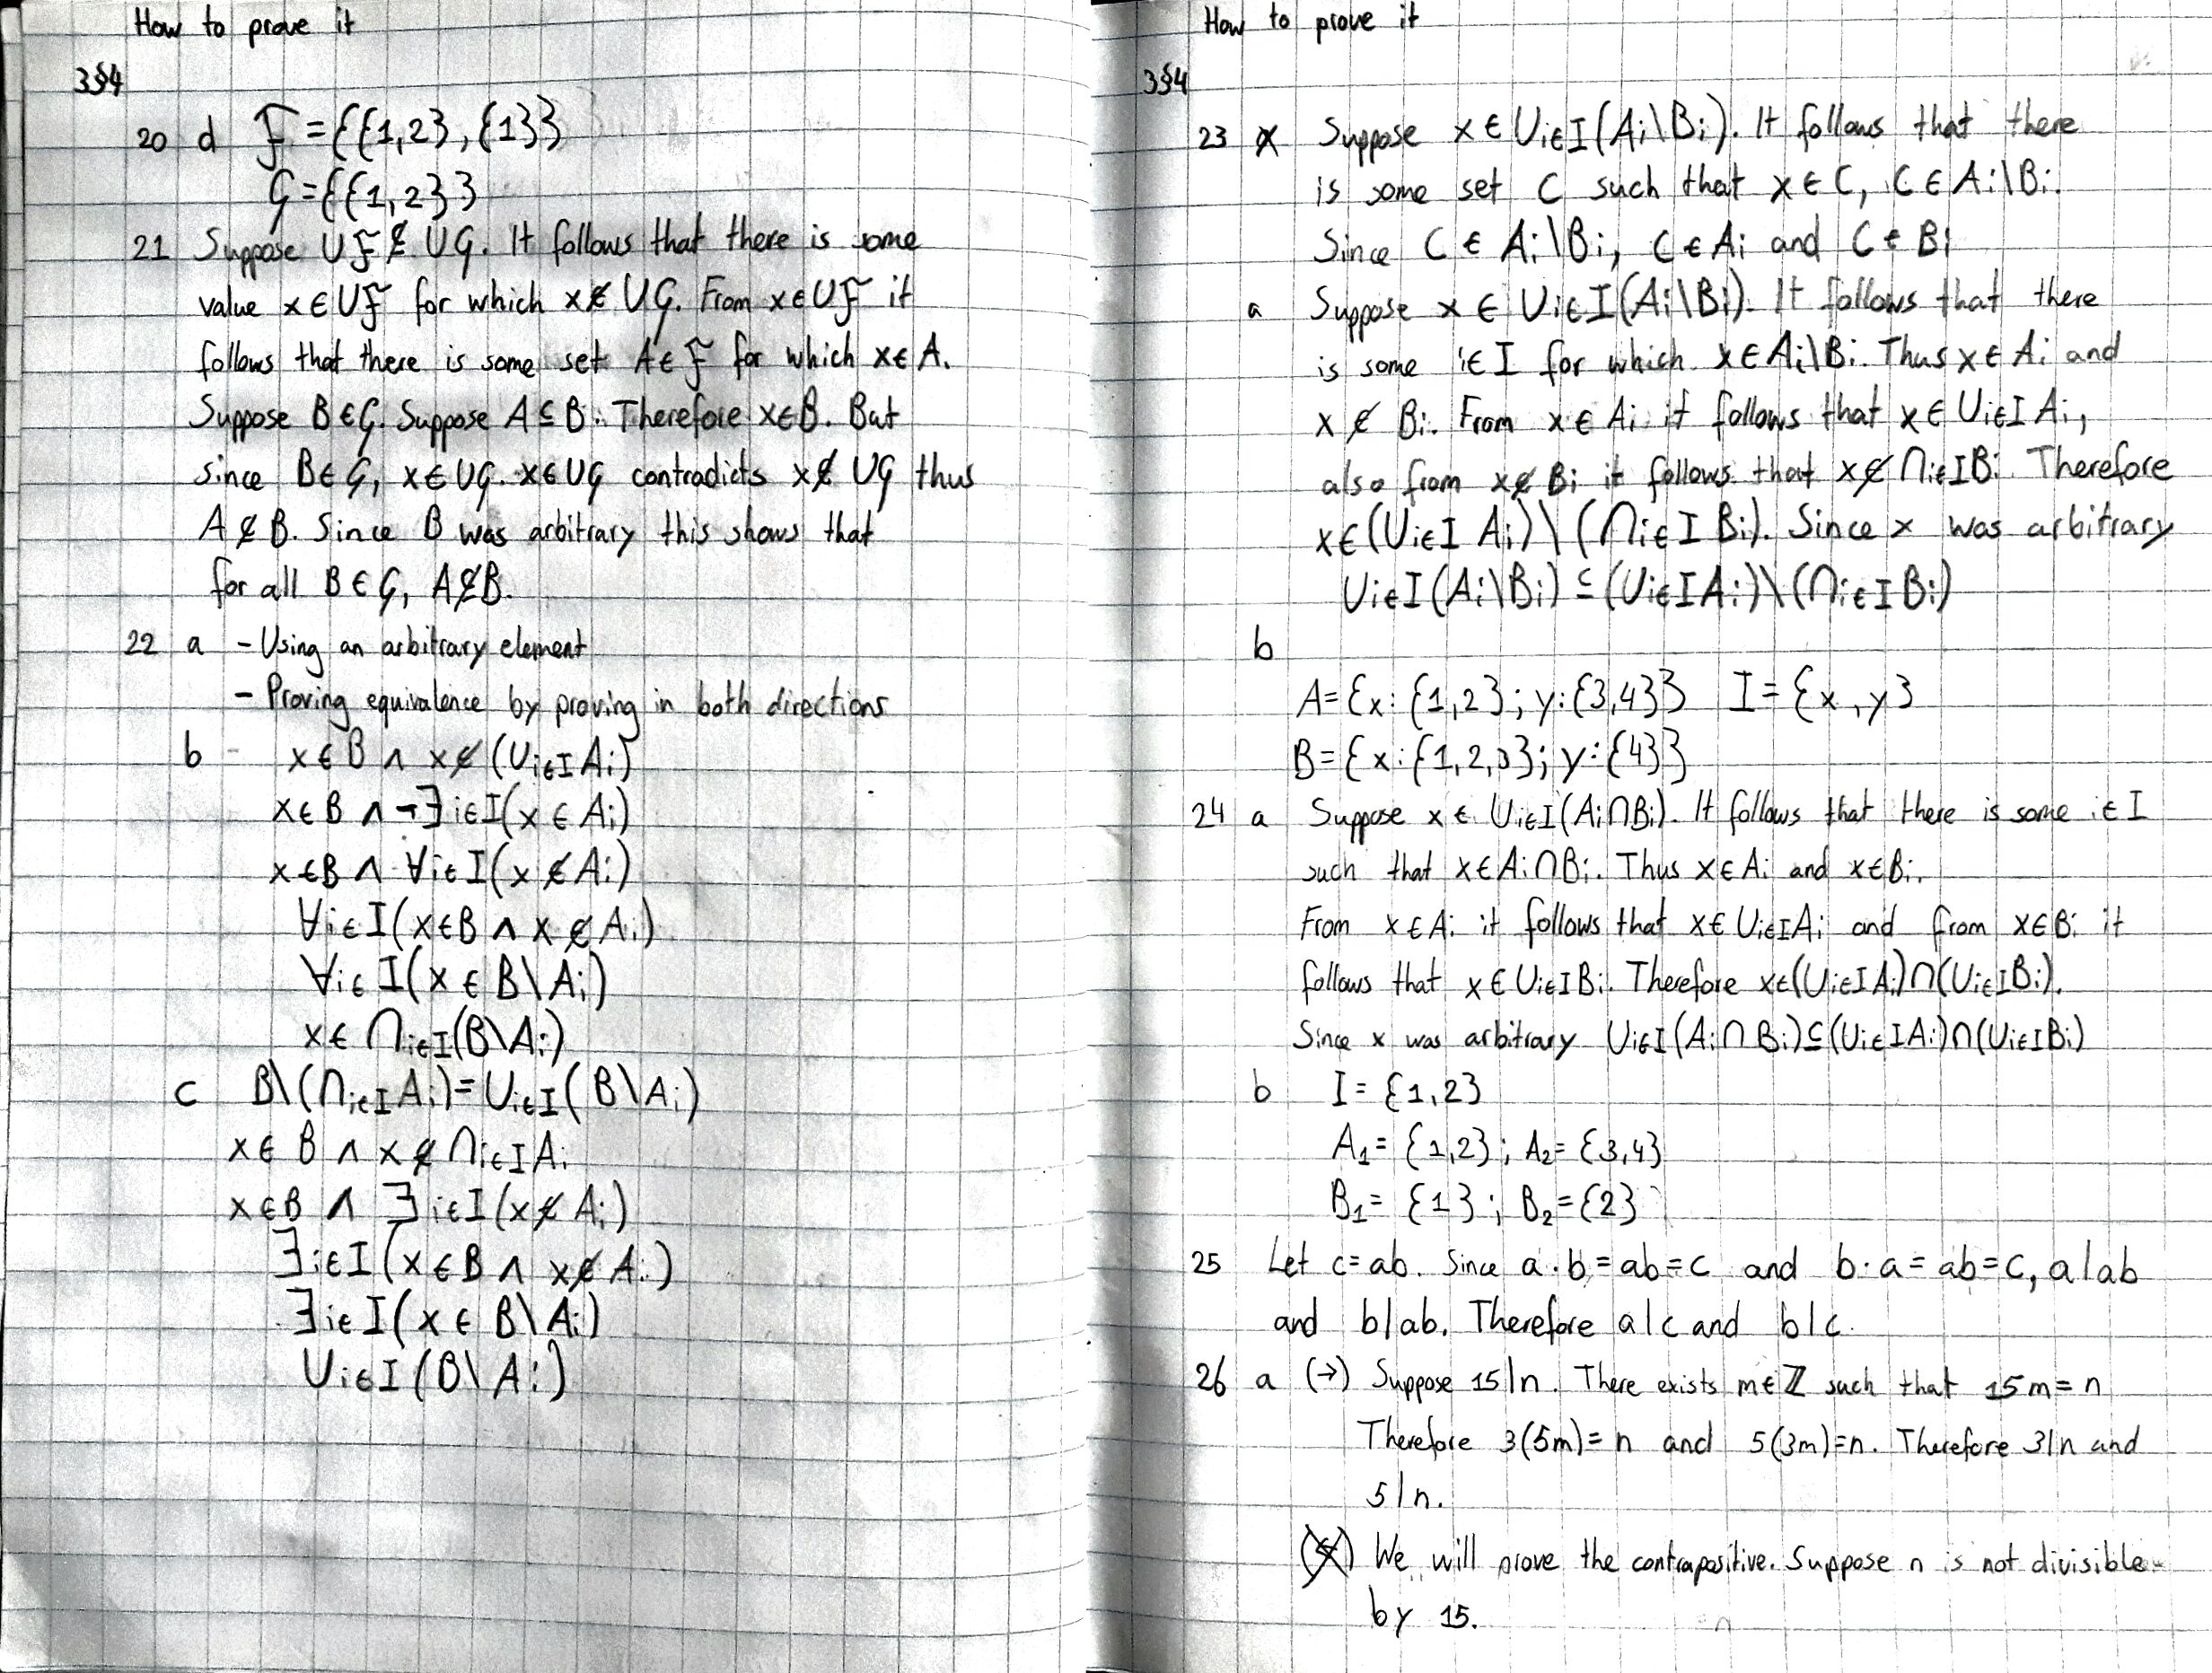 How to prove it
3§4
20 d F = {{1,2}, {1}}
G = {{1,2}}
21 Suppose ∪F ⊈ ∪G. It follows that there is some
value x ∈ ∪F for which x ∉ ∪G. From x ∈ ∪F it
follows that there is some set A ∈ F for which x ∈ A.
Suppose B ∈ G. Suppose A ⊆ B. Therefore x ∈ B. But
since B ∈ G, x ∈ ∪G. x ∈ ∪G contradicts x ∉ ∪G thus
A ⊈ B. Since B was arbitrary this shows that
for all B ∈ G, A ⊈ B.
22 a - Using an arbitrary element
- Proving equivalence by proving in both directions
b - x ∈ B ∧ x ∉ (∪i∈I Ai)
x ∈ B ∧ ¬∃i∈I(x ∈ Ai)
x ∈ B ∧ ∀i∈I(x ∉ Ai)
∀i∈I(x ∈ B ∧ x ∉ Ai)
∀i∈I(x ∈ B\Ai)
x ∈ ∩i∈I(B\Ai)
c B\(∩i∈I Ai) = ∪i∈I(B\Ai)
x ∈ B ∧ x ∉ ∩i∈I Ai
x ∈ B ∧ ∃i∈I(x ∉ Ai)
∃i∈I(x ∈ B ∧ x ∉ Ai)
∃i∈I(x ∈ B\Ai)
∪i∈I(B\Ai)
How to prove it
3§4
23 a Suppose x ∈ ∪i∈I(Ai\Bi). It follows that there
is some set C such that x ∈ C, C ∈ Ai\Bi.
Since C ∈ Ai\Bi, C ∈ Ai and C ∉ Bi
a Suppose x ∈ ∪i∈I(Ai\Bi). It follows that there
is some i∈I for which x ∈ Ai\Bi. Thus x ∈ Ai and
x ∉ Bi. From x ∈ Ai it follows that x ∈ ∪i∈I Ai,
also from x ∉ Bi it follows that x ∉ ∩i∈I Bi. Therefore
x ∈ (∪i∈I Ai)\(∩i∈I Bi). Since x was arbitrary
∪i∈I(Ai\Bi) ⊆ (∪i∈I Ai)\(∩i∈I Bi)
b
A = {x: {1,2}; y: {3,4}} I = {x, y}
B = {x: {1,2,3}; y: {4}}
24 a Suppose x ∈ ∪i∈I(Ai∩Bi). It follows that there is some i∈I
such that x ∈ Ai∩Bi. Thus x ∈ Ai and x ∈ Bi.
From x ∈ Ai it follows that x ∈ ∪i∈I Ai and from x ∈ Bi it
follows that x ∈ ∪i∈I Bi. Therefore x ∈ (∪i∈I Ai)∩(∪i∈I Bi).
Since x was arbitrary ∪i∈I(Ai∩Bi) ⊆ (∪i∈I Ai)∩(∪i∈I Bi)
b I = {1,2}
A1 = {1,2}; A2 = {3,4}
B1 = {1}; B2 = {2}
25 Let c = ab. Since a·b = ab = c and b·a = ab = c, a|ab
and b|ab. Therefore a|c and b|c.
26 a (→) Suppose 15|n. There exists m∈ℤ such that 15m = n
Therefore 3(5m) = n and 5(3m) = n. Therefore 3|n and
5|n.
(←) We will prove the contrapositive. Suppose n is not divisible
by 15.